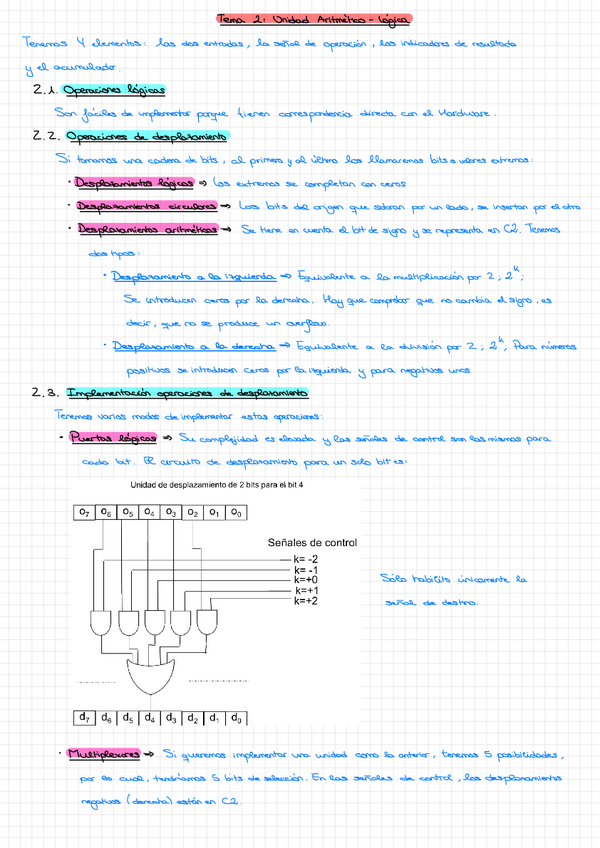 Tema 2: Unidad Aritmético-Lógica
Tenemos 4 elementos: las dos entradas, la señal de operación, los indicadores de resultado
y el acumulador.
2.1. Operaciones lógicas
Son fáciles de implementar porque tienen correspondencia directa con el Hardware.
2.2. Operaciones de desplazamiento
Si tomamos una cadera de bits, al primero y al último los llamaremos bits o valores extremos:
· Desplazamientos lógicos => Los extremos se completan con ceros
· Desplazamientos circulares => Los bits del origen que sobran por un lado, se insertan por el otro
· Desplazamientos aritméticos => Se tiene en cuenta el bit de signo y se representa en C2. Tenemos
dos tipos:
· Desplazamiento a la izquierda => Equivalente a la multiplicación por 2; 2^k;
Se introducen ceros por la derecha. Hay que comprobar que no cambia el signo, es
decir, que no se produce un overflow.
· Desplazamiento a la derecha => Equivalente a la división por 2; 2^k; Para números
positivos se introducen ceros por la izquierda y para negativos unos
2.3. Implementación operaciones de desplazamiento
Tenemos varios modos de implementar estas operaciones:
· Puertas lógicas => Su complejidad es elevada y las señales de control son las mismas para
cada bit. El circuito de desplazamiento para un solo bit es:
Unidad de desplazamiento de 2 bits para el bit 4
O7 O6 O5 O4 O3 O2 O1 O0
Señales de control
k= -2
k= -1
k=+0
k=+1
k=+2
Sólo habilito únicamente la
señal de destino.
d7 d6 d5 d4 d3 d2 d1 d0
· Multiplexores => Si queremos implementar una unidad como la anterior, tenemos 5 posibilidades,
por lo cual, tendríamos 5 bits de selección. En las señales de control, los desplazamientos
negativos (derecha) están en C2.